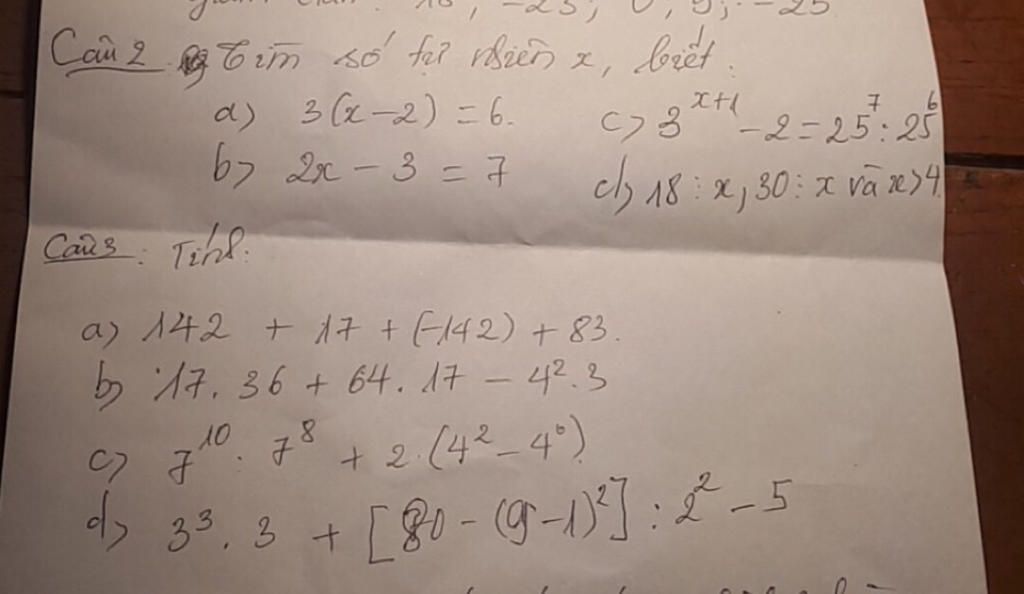 18; -23; 0; 9; -25
Câu 2 Tìm số tự nhiên x, biết.
a) 3(x-2) = 6.
c) 3^{x+1} - 2 = 25^7 : 25^6
b) 2x - 3 = 7
d) 18 ⋮ x, 30 ⋮ x và x > 4
Câu 3: Tính:
a) 142 + 17 + (-142) + 83.
b) 17. 36 + 64. 17 - 4². 3
c) 7^{10} : 7^8 + 2. (4² - 4⁰)
d) 3³. 3 + [80 - (9 - 1)²] : 2² - 5